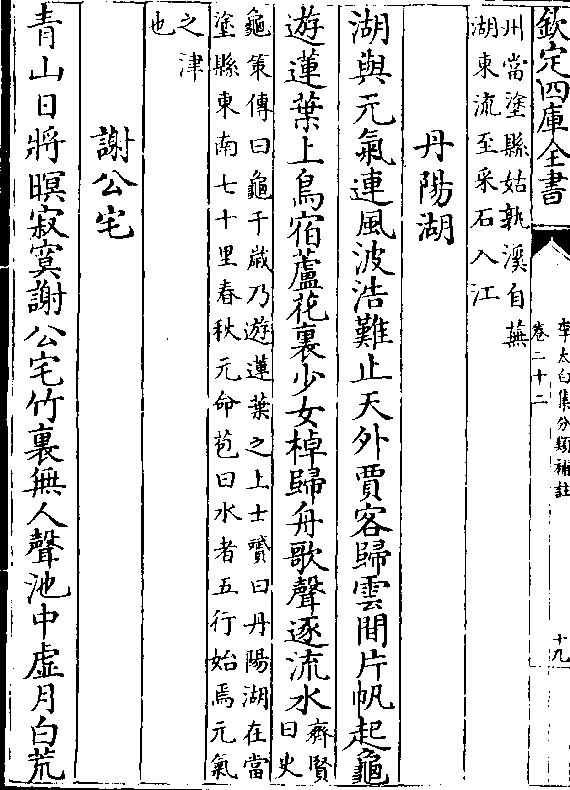 欽定四庫全書
李太白集分類補註
卷二十二
十九
州當塗縣姑孰溪自蕪
湖東流至采石入江
丹陽湖
湖與元氣連風波浩難止天外賈客歸雲間片帆起龜
遊蓮葉上鳥宿蘆花裏少女棹歸舟歌聲逐流水
齊賢
曰史
龜策傳曰龜千歲乃遊蓮葉之上士贇曰丹陽湖在當
塗縣東南七十里春秋元命苞曰水者五行始焉元氣
之津
也
謝公宅
青山日將暝寂寞謝公宅竹裏無人聲池中虛月白荒